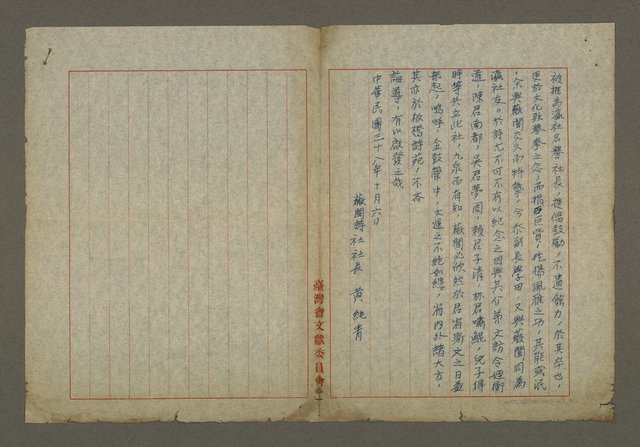 被推為瀛社名譽社長，提倡鼓勵，不遺餘力，於其卒也，
更於文化致拳拳之念，而捐巨貲，挖揚風雅之功，其能或泯
，余與薇閣交久而特摯，今忝副長學田，又與薇閣同為
瀛社友。於詩尤不可不有以紀念之因與其介弟文訪令姪衡
道，陳君南都，吳君夢周，賴君子清，林君嘯鯤，兒子得
時等共立此社，九泉而有知，薇閣必欣然於后，斯文之日益
振起，嗚呼，金鼓聲中，文運之不絕如縷，省內外諸大方，
其亦於板橋詩苑，不吝
誨導，有以啟發之哉
中華民國三十八年十月六日
薇閣詩社社長 黃純青
臺灣省文獻委員會